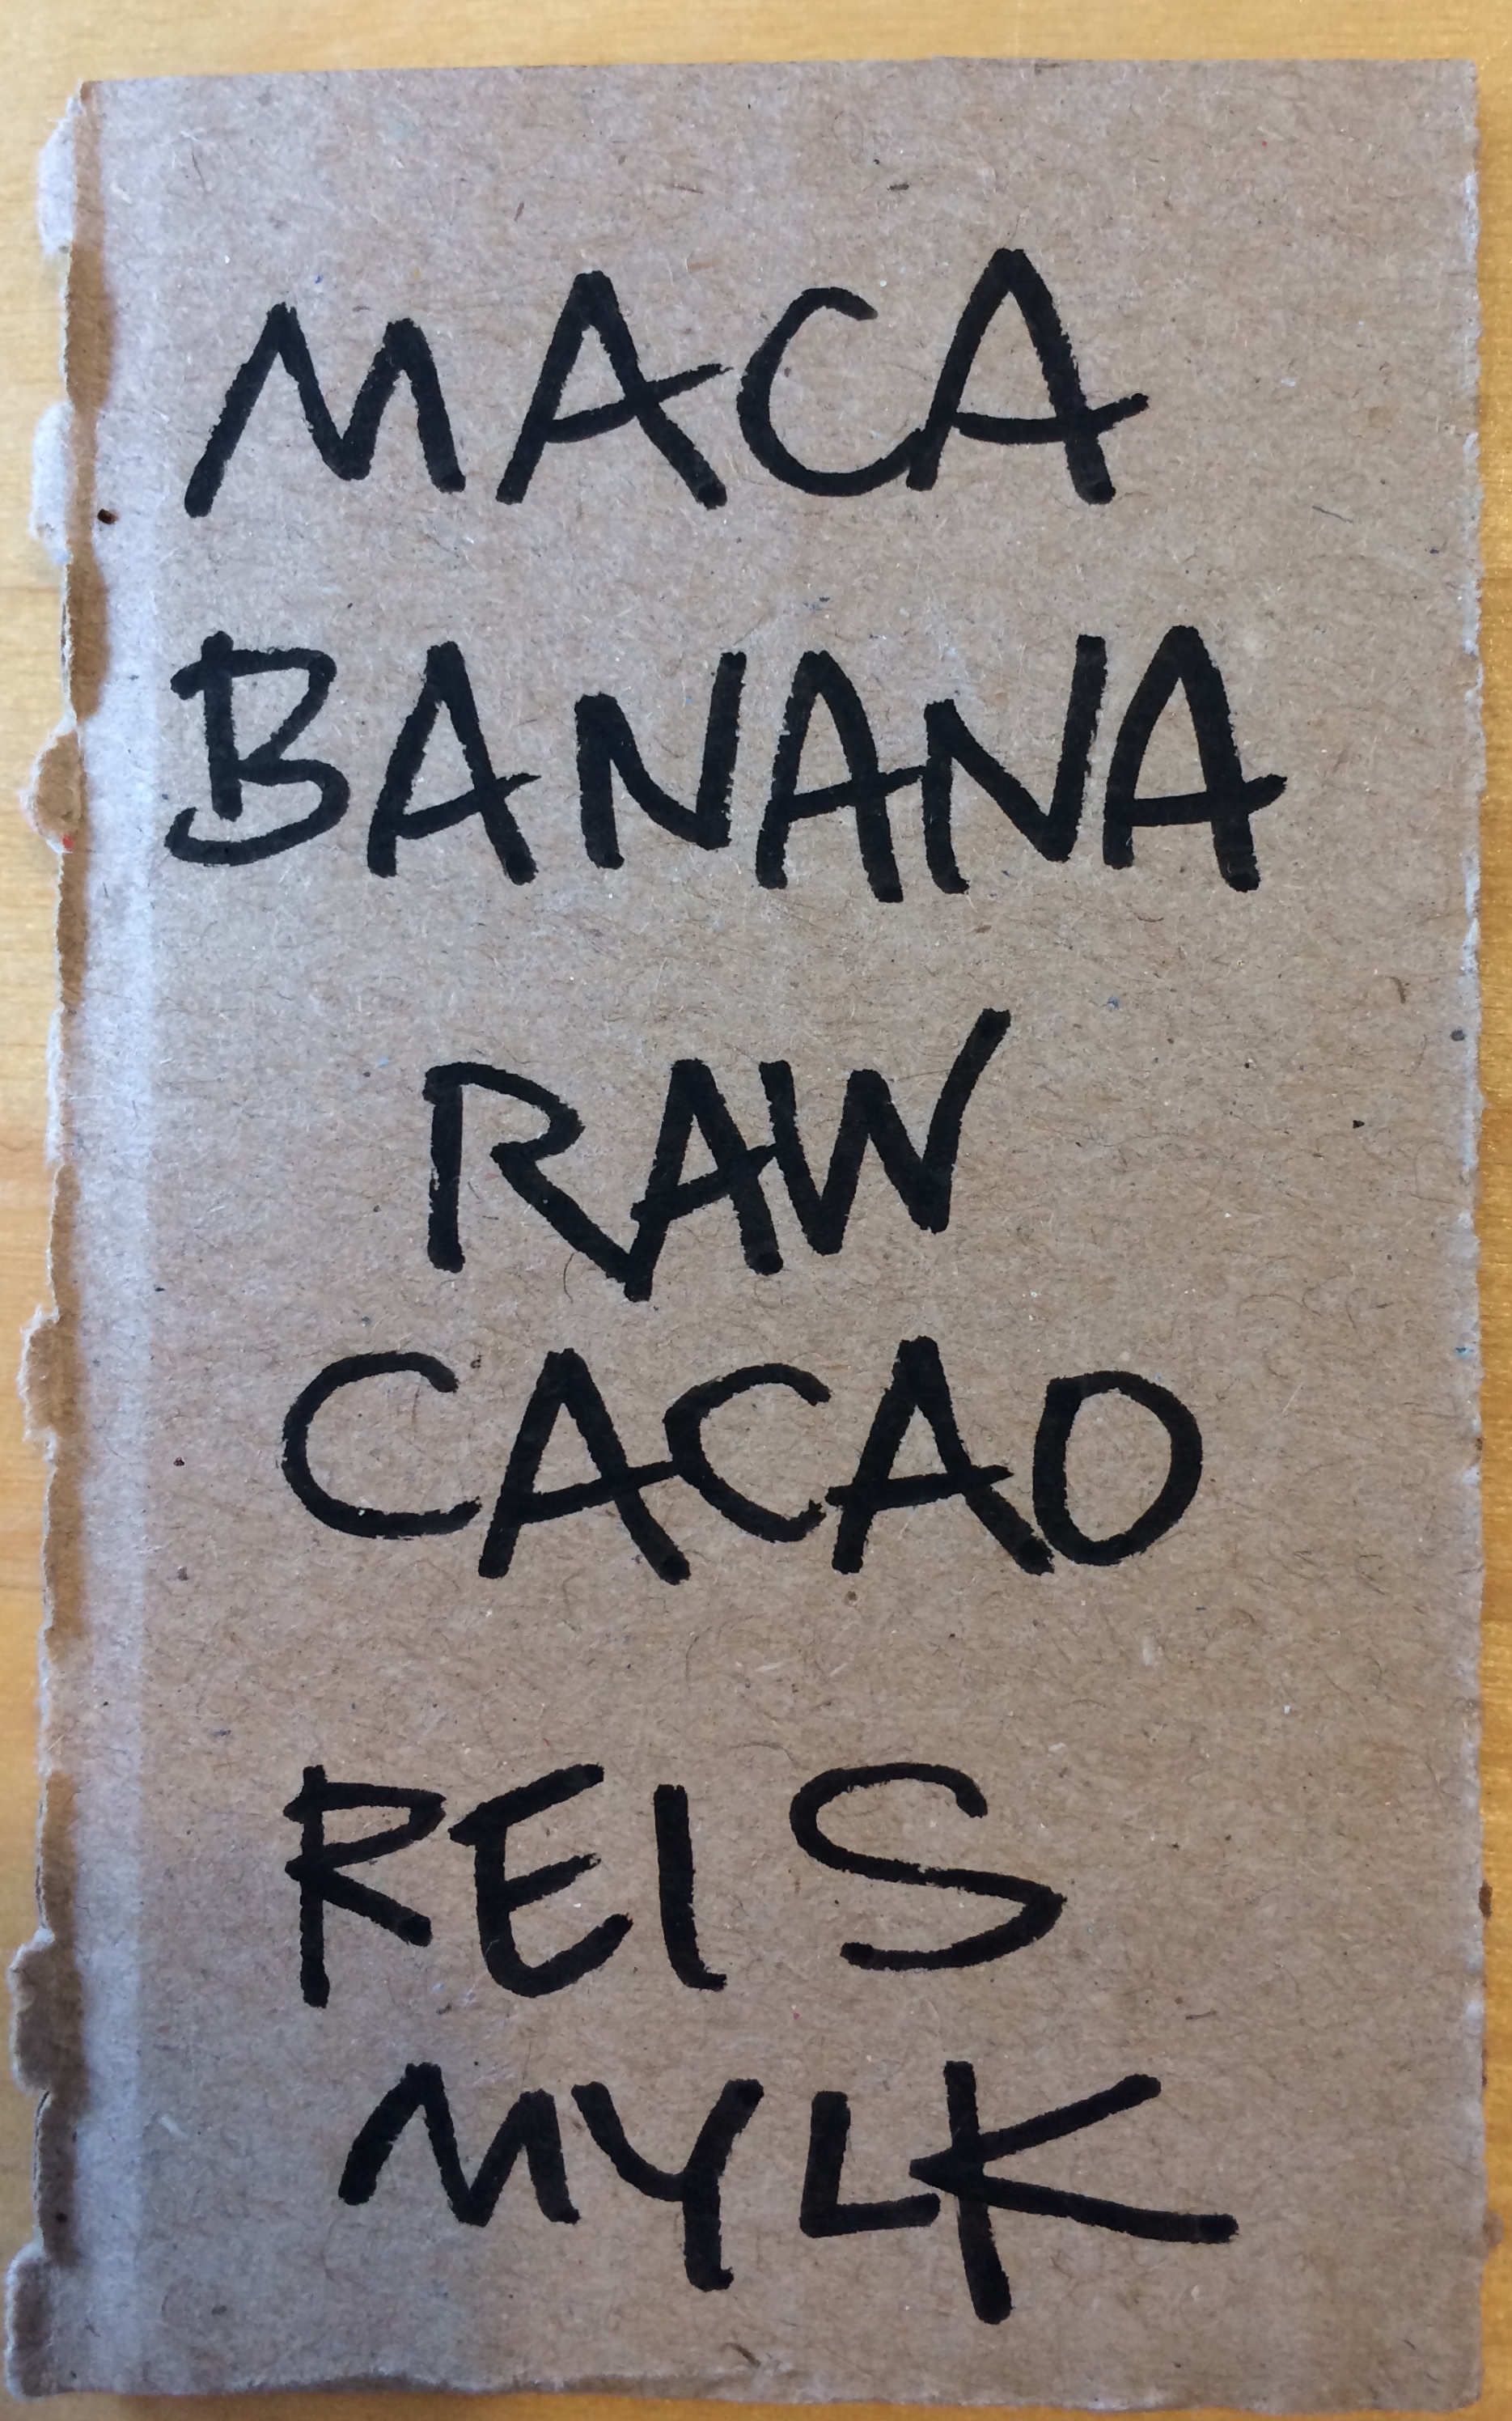 MACA
BANANA
RAW
CACAO
REIS
MYLK